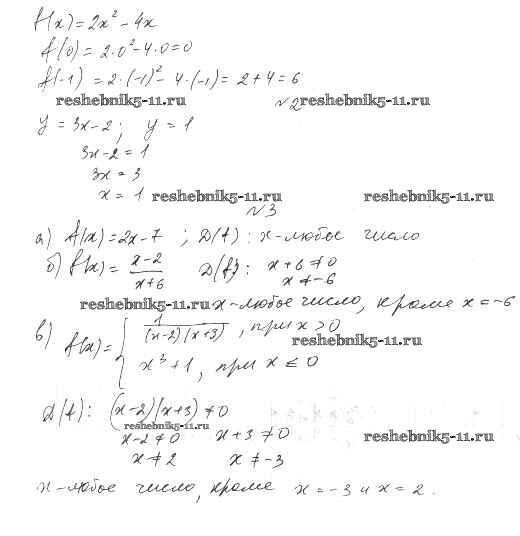 f(x) = 2x² - 4x
f(0) = 2·0² - 4·0 = 0
f(-1) = 2·(-1)² - 4·(-1) = 2 + 4 = 6
reshebnik5-11.ru №2 reshebnik5-11.ru
y = 3x - 2 ; y = 1
3x - 2 = 1
3x = 3
x = 1 reshebnik5-11.ru reshebnik5-11.ru
№3
а) f(x) = 2x - 7 ; D(f) : x - любое число
б) f(x) = (x-2)/(x+6) D(f) : x + 6 ≠ 0
x ≠ -6
reshebnik5-11.ru x - любое число, кроме x = -6
в) f(x) = { 1/((x-2)(x+3)), при x > 0
reshebnik5-11.ru
x³ + 1, при x ≤ 0
D(f) : (x-2)(x+3) ≠ 0
reshebnik5-11.ru
x - 2 ≠ 0 x + 3 ≠ 0 reshebnik5-11.ru
x ≠ 2 x ≠ -3
x - любое число, кроме x = -3 и x = 2.